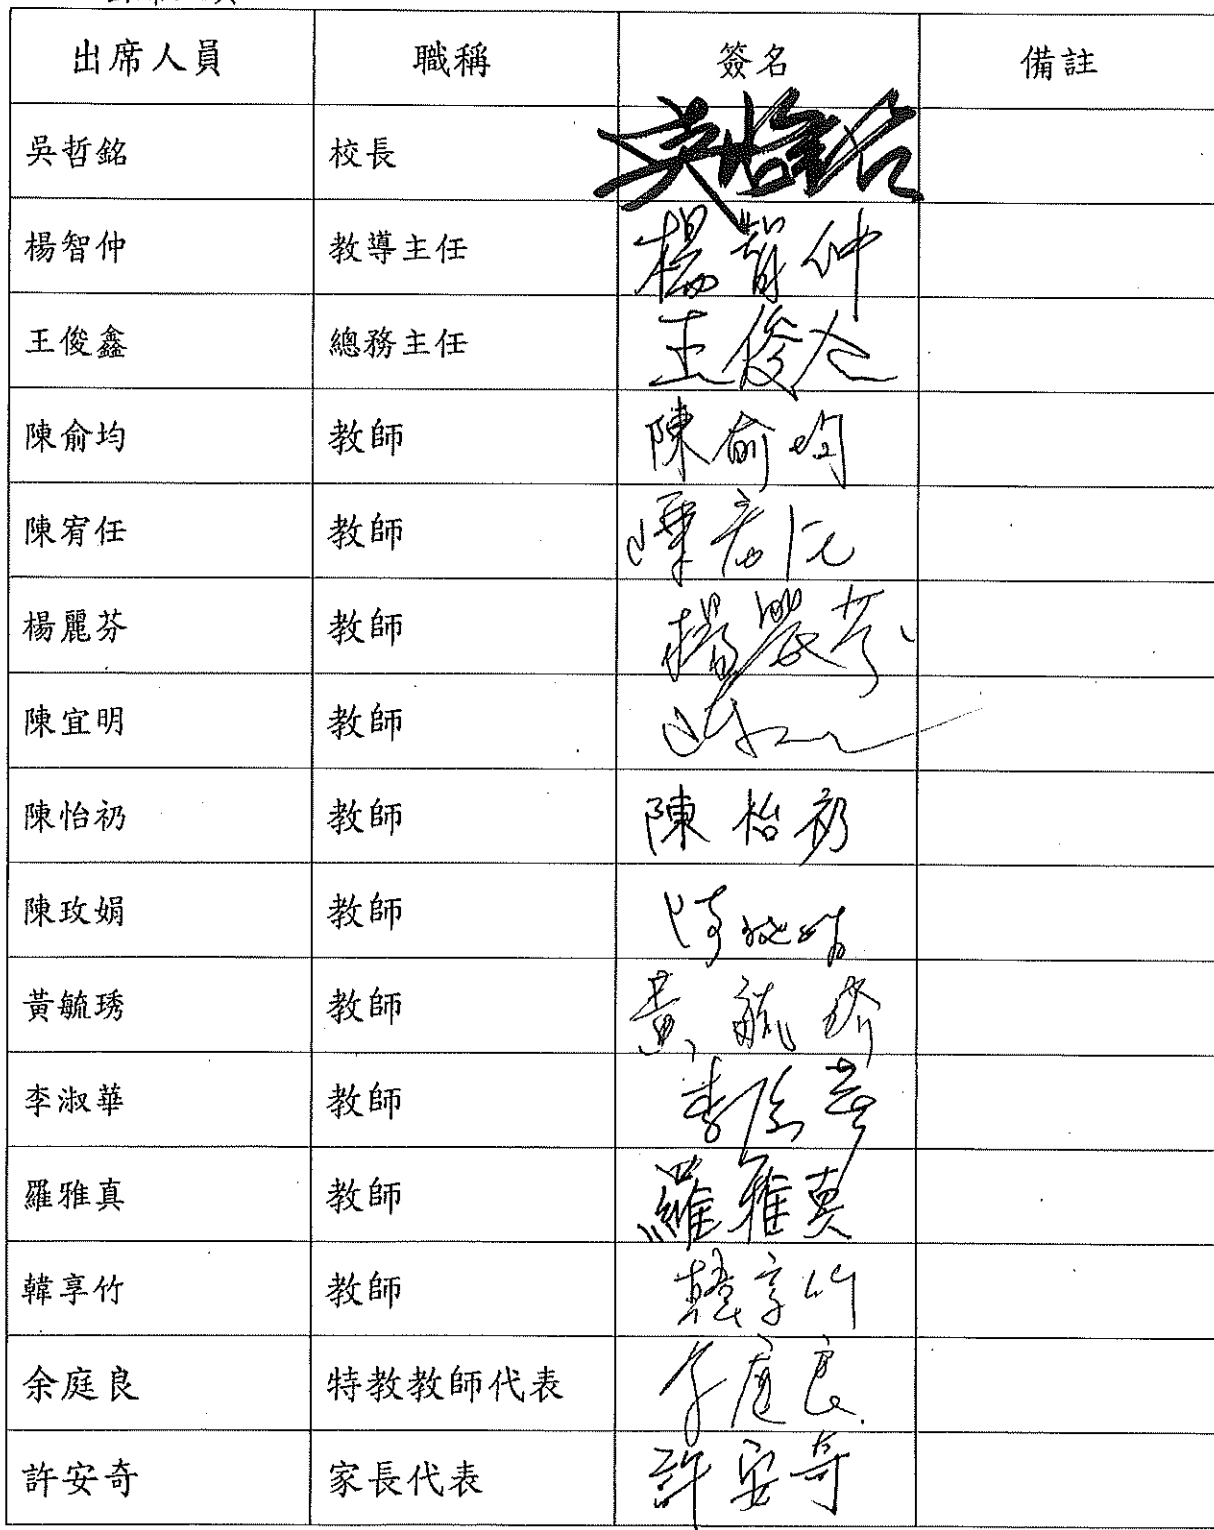 出席人員 職稱 簽名 備註
吳哲銘 校長
楊智仲 教導主任 楊智仲
王俊鑫 總務主任 王俊
陳俞均 教師 陳俞均
陳宥任 教師 陳宥任
楊麗芬 教師 楊麗芬
陳宜明 教師
陳怡礽 教師 陳怡礽
陳玫娟 教師 陳玫娟
黃毓琇 教師 黃毓琇
李淑華 教師 李淑華
羅雅真 教師 羅雅真
韓享竹 教師 韓享竹
余庭良 特教教師代表 余庭良
許安奇 家長代表 許安奇